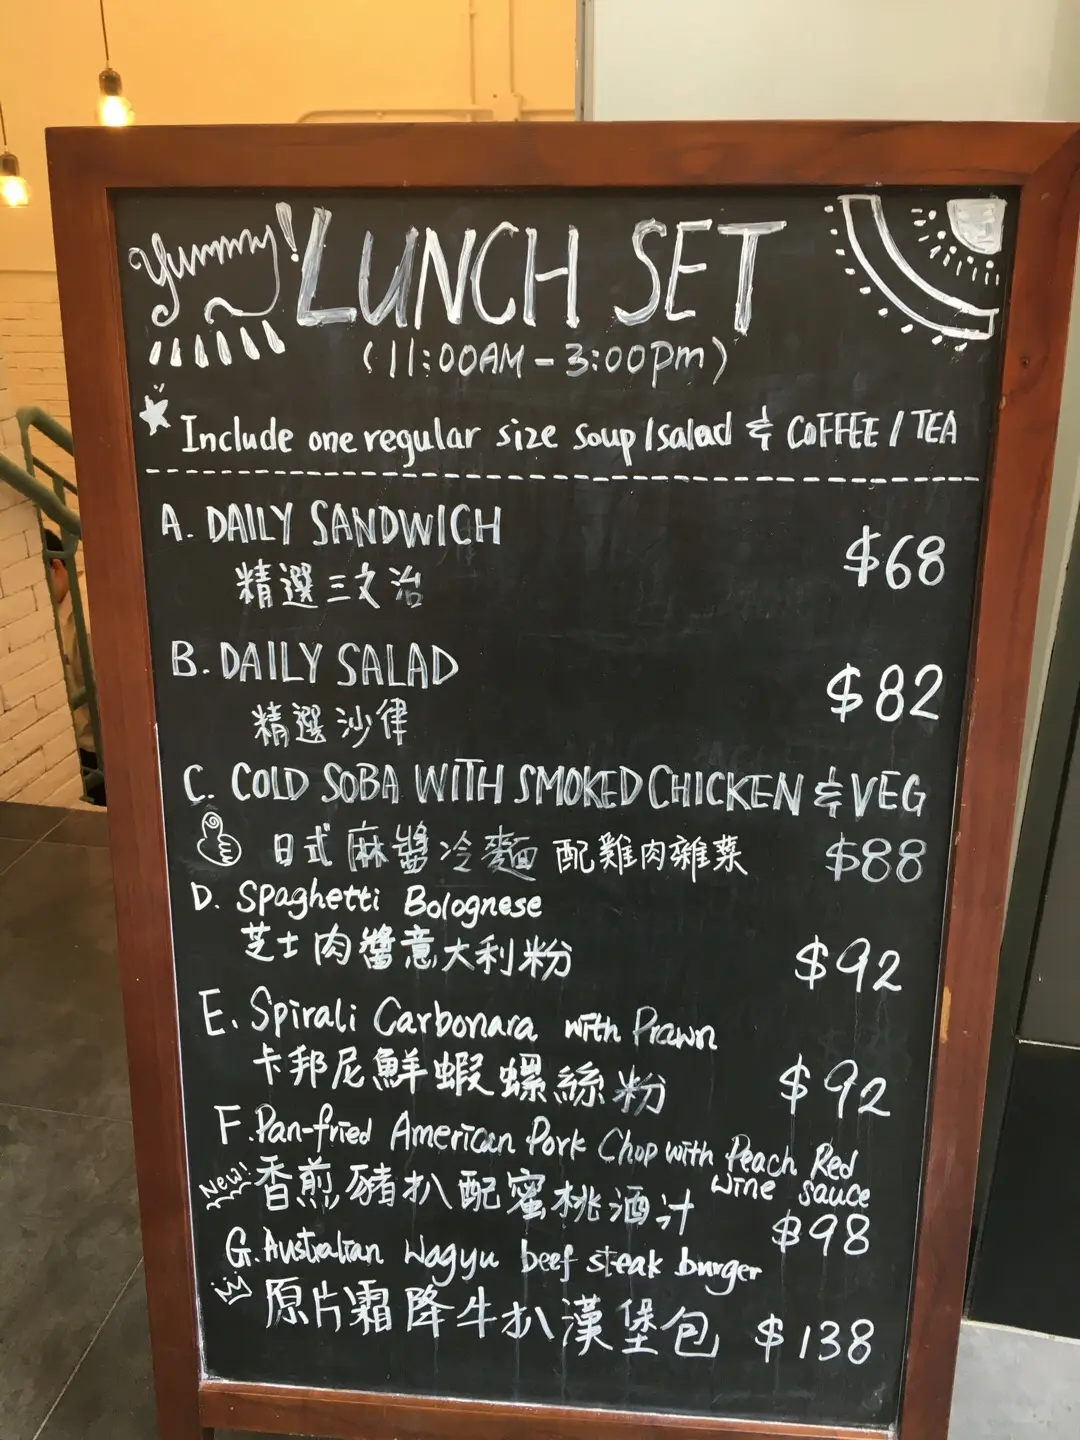 Yummy! LUNCH SET
(11:00AM - 3:00pm)
Include one regular size soup/salad & COFFEE / TEA
A. DAILY SANDWICH
精選三文治
$68
B. DAILY SALAD
精選沙律
$82
C. COLD SOBA WITH SMOKED CHICKEN & VEG
日式麻醬冷麵 配雞肉雜菜 $88
D. Spaghetti Bolognese
芝士肉醬意大利粉 $92
E. Spirali Carbonara with Prawn
卡邦尼鮮蝦螺絲粉 $92
F. Pan-fried American Pork Chop with Peach Red
wine sauce
New!! 香煎豬扒配蜜桃酒汁
$98
G. Australian Wagyu beef steak burger
原片霜降牛扒漢堡包 $138